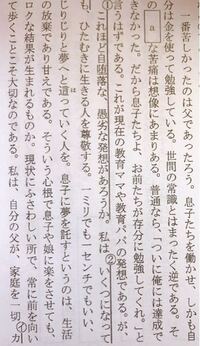 一番苦しかったのは父であったろう。息子たちを働かせ、しかも自
分は金を使って勉強している。世間の常識とはまったく逆である。そ
の a な苦痛は想像にあまりある。普通なら、「ついに俺には達成で
きなかった。だから息子たちよ、お前たちが存分に勉強してくれ。」と
言うはずである。これが現在の教育ママや教育パパの発想である。が、
①これほど自堕落な、愚劣な発想があろうか。私は②いくつになって
も、ひたむきに生きる人を尊敬する。一ミリでも一センチでもいい、
じりじりと夢へと這っていく人を。息子に夢を託すというのは、生活
の放棄であり甘えである。そういう心根で息子や娘に楽をさせても、
ロクな結果が生まれるものか。現状にふさわしい所で、常に前を向い
て歩くことこそ大切なのである。私は、自分の父が、家庭を一切イカ